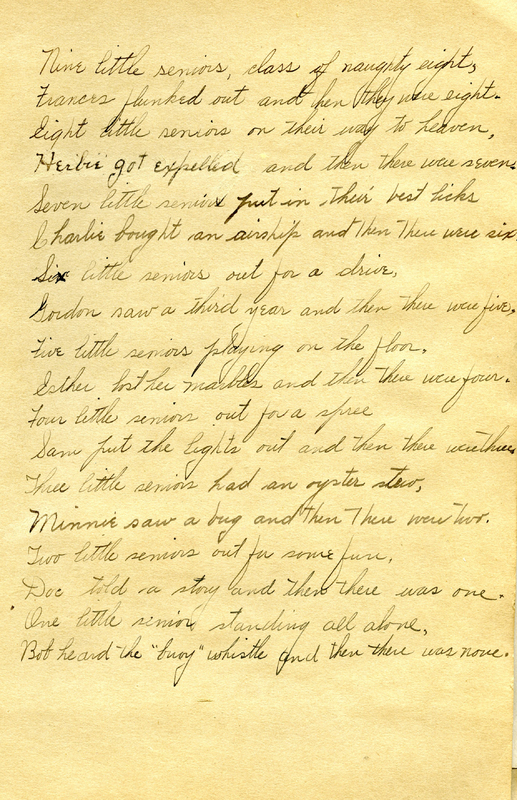 Nine little seniors, class of naughty eight,
Frances flunked out and then they were eight.
Eight little seniors on their way to heaven,
Herbie got expelled and then there were seven.
Seven little seniors put in their best licks
Charlie bought an airship and then there were six.
Six little seniors out for a drive,
Gordon saw a third year and then there were five.
Five little seniors playing on the floor,
Esther lost her marbles and then there were four.
Four little seniors out for a spree
Sam put the lights out and then there were three
Three little seniors had an oyster stew,
Minnie saw a bug and then there were two.
Two little seniors out for some fun,
Doc told a story and then there was one.
One little senior standing all alone,
Bob heard the "buoy" whistle and then there was none.